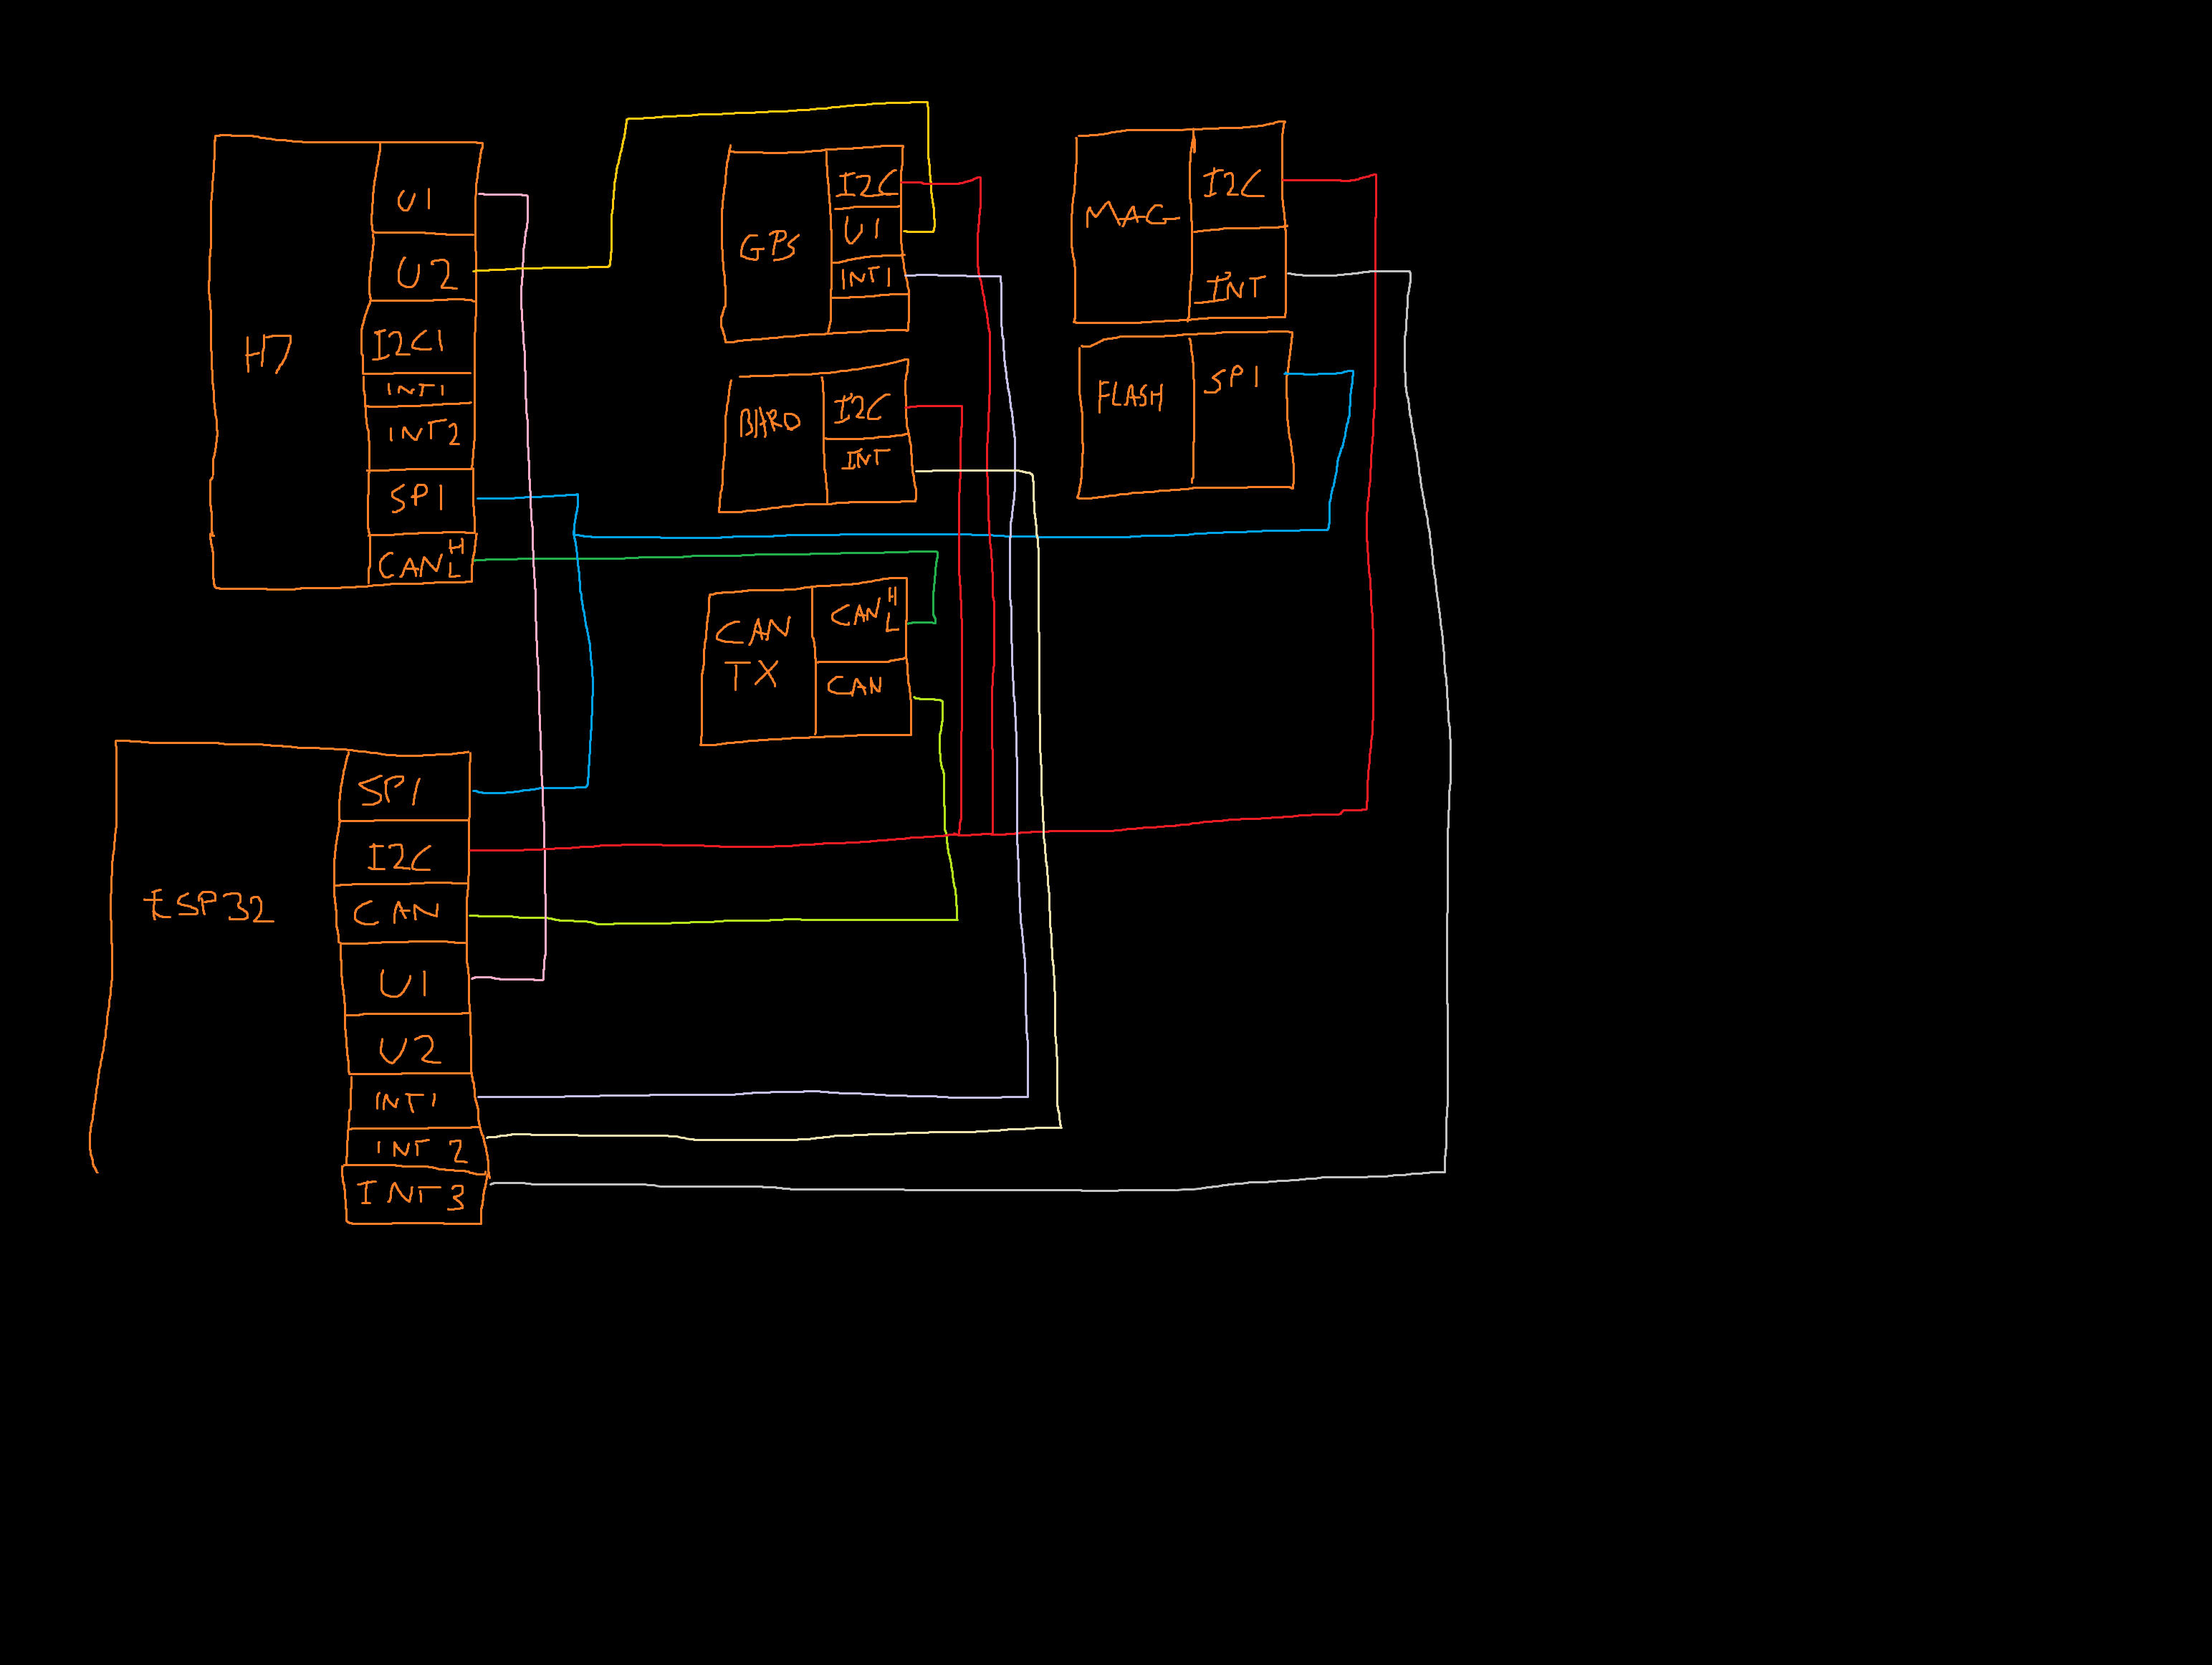 H7
U1
U2
I2C1
INT1
INT2
SPI
CAN H L
GPS
I2C
U1
INT1
BARO
I2C
INT
MAG
I2C
INT
FLASH
SPI
CAN TX
CAN H L
CAN
ESP32
SPI
I2C
CAN
U1
U2
INT1
INT2
INT3